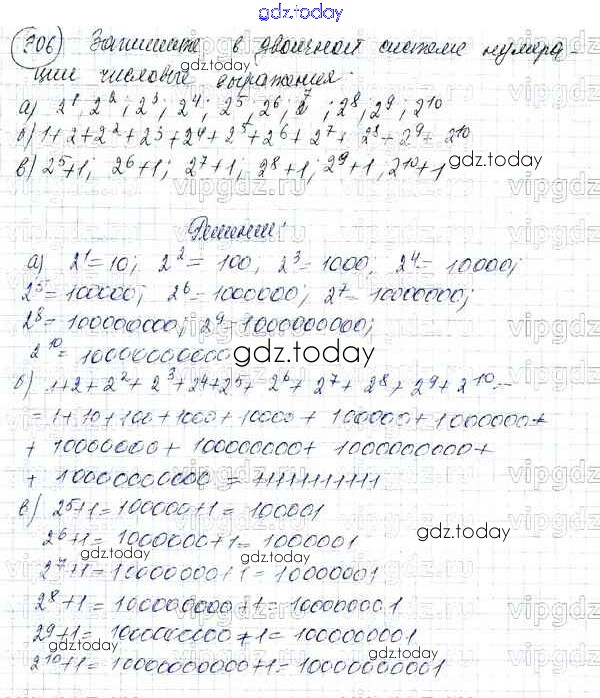 gdz.today
706) Запишите в двоичной системе нумера-
ции числовые выражения.
а) 2^1, 2^2; 2^3; 2^4; 2^5, 2^6; 2^7; 2^8, 2^9; 2^10
б) 1+2+2^2+23+24+2^5+2^6+2^7+2^8+2^9+2^10
gdz.today
в) 2^5+1; 2^6+1; 2^7+1; 2^8+1; 2^9+1, 2^10+1
vipgdz.ru
Решение:
а) 2^1=10; 2^2=100, 2^3=1000, 2^4=10000;
2^5=100000; 2^6=1000000; 2^7=10000000;
2^8=100000000; 2^9=1000000000;
2^10=10000000000
gdz.today
б) 1+2+2^2+2^3+24+25+2^6+2^7+2^8+2^9+2^10=
=1+10+100+1000+10000+100000+1000000+
+10000000+100000000+1000000000+
+10000000000=11111111111
в) 25+1=100000+1=100001
gdz.today
2^6+1=1000000+1=1000001
2^7+1=10000000+1=10000001
gdz.today
gdz.today
2^8+1=100000000+1=100000001
29+1=1000000000+1=1000000001
2^10+1=10000000000+1=10000000001